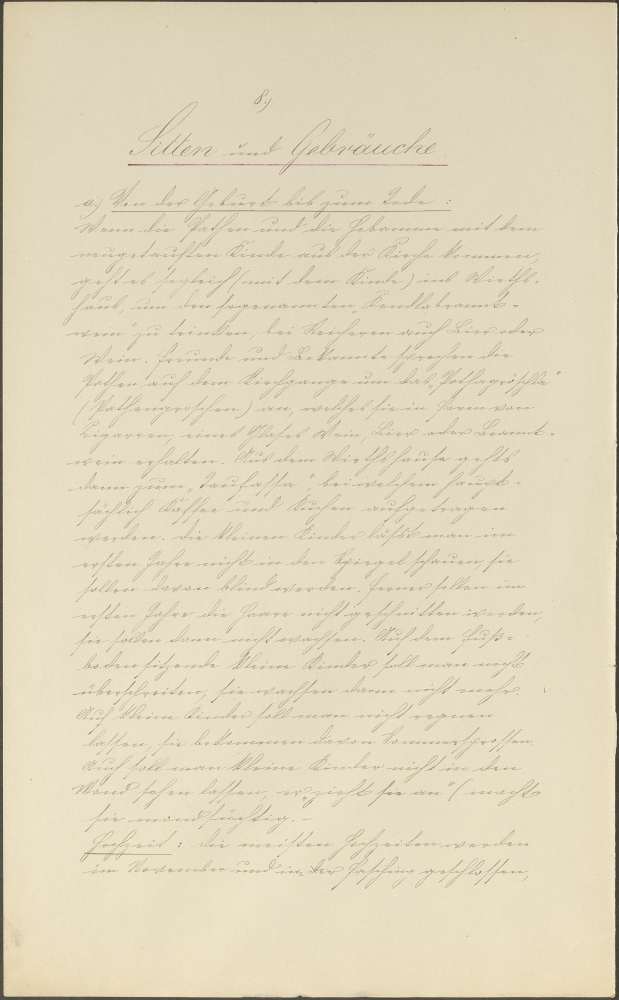 8.)
Sitten und Gebräuche
a.) Von der Geburt bis zum Tode :
Wenn die Pathen und die Hebamme mit dem
neugetauften Kinde aus der Kirche kommen,
geht es sogleich (mit dem Kinde) ins Wirths-
haus, um den sogenannten „Kendlabrannt-
wein" zu trinken, bei Reicheren auch Bier oder
Wein. Freunde und Bekannte sprechen die
Pathen auf dem Kirchgange um das „Pathagröschla"
(Pathengroschen) an, welches sie in Form von
Cigarren, eines Glases Wein, Bier oder Brannt-
wein erhalten. Aus dem Wirthshause gehts
dann zum „Taufassa", bei welchem haupt-
sächlich Kaffee und Kuchen aufgetragen
werden. Die kleinen Kinder läßt man im
ersten Jahre nicht in den Spiegel schauen, sie
sollen davon blind werden. Ferner sollen im
ersten Jahre die Haare nicht geschnitten werden,
sie sollen dann nicht wachsen. Auf dem Fuß-
boden sitzende kleine Kinder soll man nicht
überschreiten, sie wachsen dann nicht mehr.
Auf kleine Kinder soll man nicht regnen
lassen, sie bekommen davon Sommersprossen.
Auch soll man kleine Kinder nicht in den
Mond sehen lassen, er „zieht sie an" (macht
sie mondsüchtig. –
Hochzeit : die meisten Hochzeiten werden
im November und in der Fasching geschlossen,